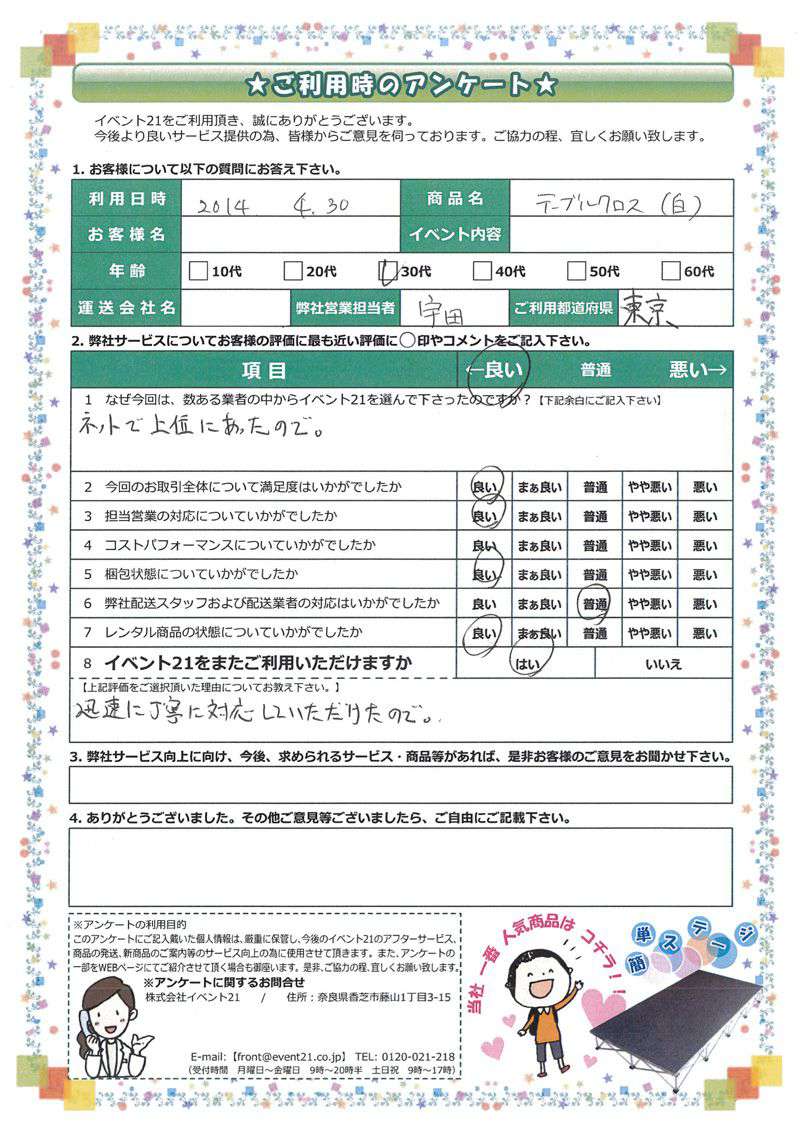 ★ご利用時のアンケート★
イベント21をご利用頂き、誠にありがとうございます。
今後より良いサービス提供の為、皆様からご意見を伺っております。ご協力の程、宜しくお願い致します。
1. お客様について以下の質問にお答え下さい。
利用日時 2014 4.30 商品名 テーブルクロス(白)
お客様名 イベント内容
年齢 10代 20代 30代 40代 50代 60代
運送会社名 弊社営業担当者 宇田 ご利用都道府県 東京
2. 弊社サービスについてお客様の評価に最も近い評価に◯印やコメントをご記入下さい。
項目 ←良い 普通 悪い→
1 なぜ今回は、数ある業者の中からイベント21を選んで下さったのですか？【下記余白にご記入下さい】
ネットで上位にあったので。
2 今回のお取引全体について満足度はいかがでしたか 良い まぁ良い 普通 やや悪い 悪い
3 担当営業の対応についていかがでしたか 良い まぁ良い 普通 やや悪い 悪い
4 コストパフォーマンスについていかがでしたか 良い まぁ良い 普通 やや悪い 悪い
5 梱包状態についていかがでしたか 良い まぁ良い 普通 やや悪い 悪い
6 弊社配送スタッフおよび配送業者の対応はいかがでしたか 良い まぁ良い 普通 やや悪い 悪い
7 レンタル商品の状態についていかがでしたか 良い まぁ良い 普通 やや悪い 悪い
8 イベント21をまたご利用いただけますか はい いいえ
【上記評価をご選択頂いた理由についてお教え下さい。】
迅速に丁寧に対応していただけたので。
3. 弊社サービス向上に向け、今後、求められるサービス・商品等があれば、是非お客様のご意見をお聞かせ下さい。
4. ありがとうございました。その他ご意見等ございましたら、ご自由にご記載下さい。
※アンケートの利用目的
このアンケートにご記入戴いた個人情報は、厳重に保管し、今後のイベント21のアフターサービス、
商品の発送、新商品のご案内等のサービス向上の為に使用させて頂きます。また、アンケートの
一部をWEBページにてご紹介させて頂く場合も御座います。是非、ご協力の程、宜しくお願い致します。
※アンケートに関するお問合せ
株式会社イベント21 / 住所：奈良県香芝市藤山1丁目3-15
E-mail:【front@event21.co.jp】 TEL: 0120-021-218
（受付時間 月曜日～金曜日 9時～20時半 土日祝 9時～17時）
当社一番人気商品はコチラ！！
簡単ステージ